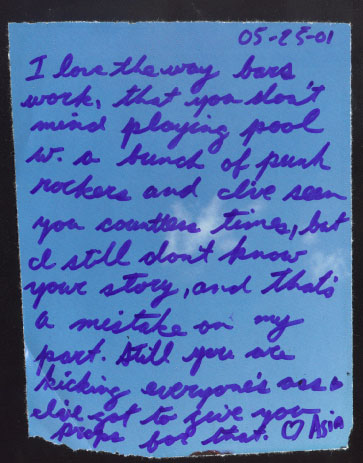 05-25-01
I love the way bars
work, that you don't
mind playing pool
w. a bunch of punk
rockers and I've seen
you countless times, but
I still don't know
your story, and that's
a mistake on my
part. Still you are
kicking everyone's ass &
I've got to give you
props for that. ♡ Asia